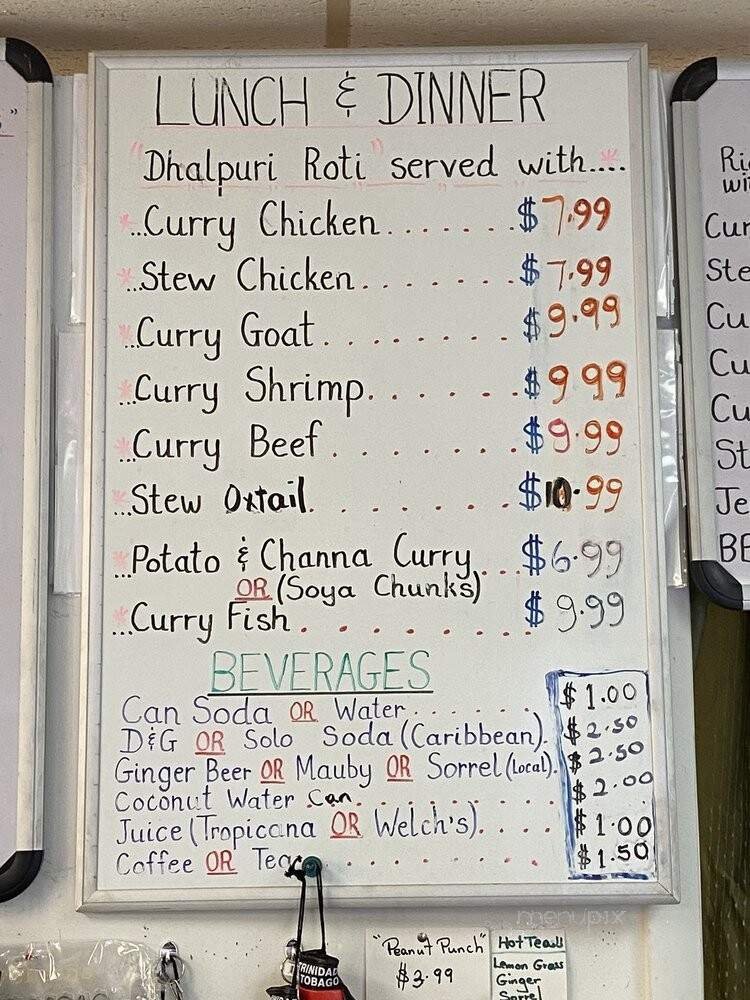 LUNCH & DINNER
"Dhalpuri Roti" served with....
...Curry Chicken.......$7.99
...Stew Chicken.......$7.99
...Curry Goat.......$9.99
...Curry Shrimp......$9.99
...Curry Beef.......$9.99
...Stew Oxtail.......$10.99
...Potato & Channa Curry...$6.99
OR (Soya Chunks)
...Curry Fish.......$9.99
BEVERAGES
Can Soda OR Water...... $1.00
D&G OR Solo Soda (Caribbean). $2.50
Ginger Beer OR Mauby OR Sorrel (Local). $2.50
Coconut Water Can....... $2.00
Juice (Tropicana OR Welch's).... $1.00
Coffee OR Tea....... $1.50
Ri
wi
Cur
Ste
Cu
Cu
Cu
St
Je
BE
TRINIDAD
TOBAGO
"Peanut Punch"
$3.99
Hot Teas
Lemon Grass
Ginger
Sorrel
menupix